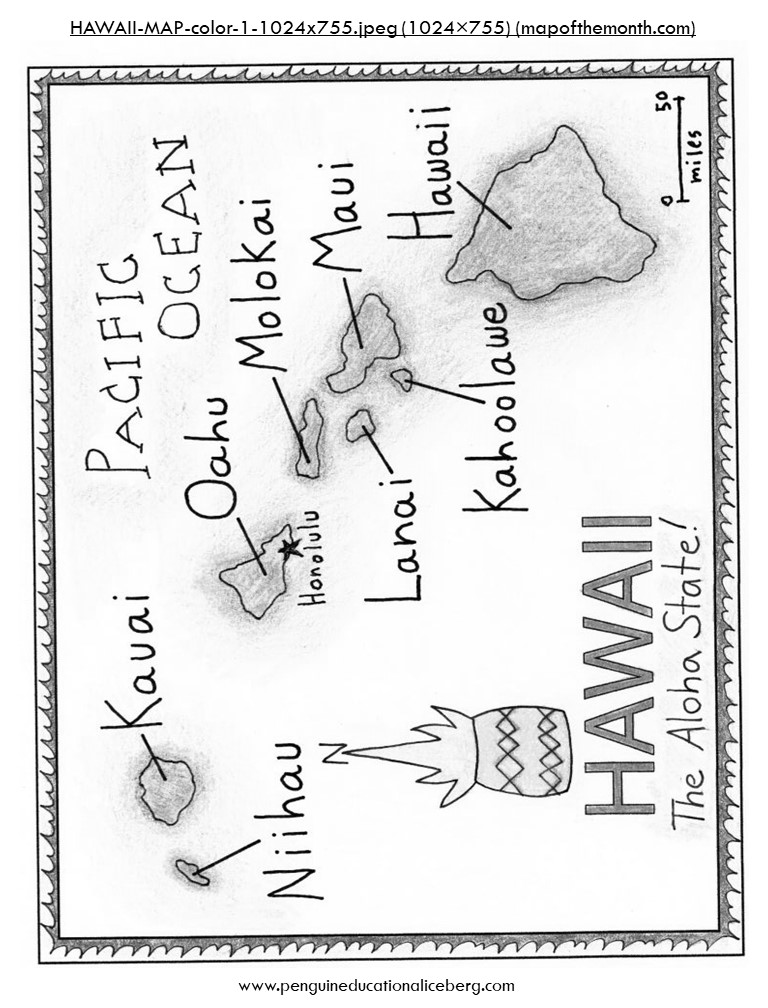 HAWAII-MAP-color-1-1024x755.jpeg (1024×755) (mapofthemonth.com)
PACIFIC
OCEAN
Kauai
Niihau
Oahu
Honolulu
Molokai
Lanai
Maui
Kahoolawe
Hawaii
N
HAWAII
The Aloha State!
0 50
miles
www.penguineducationaliceberg.com